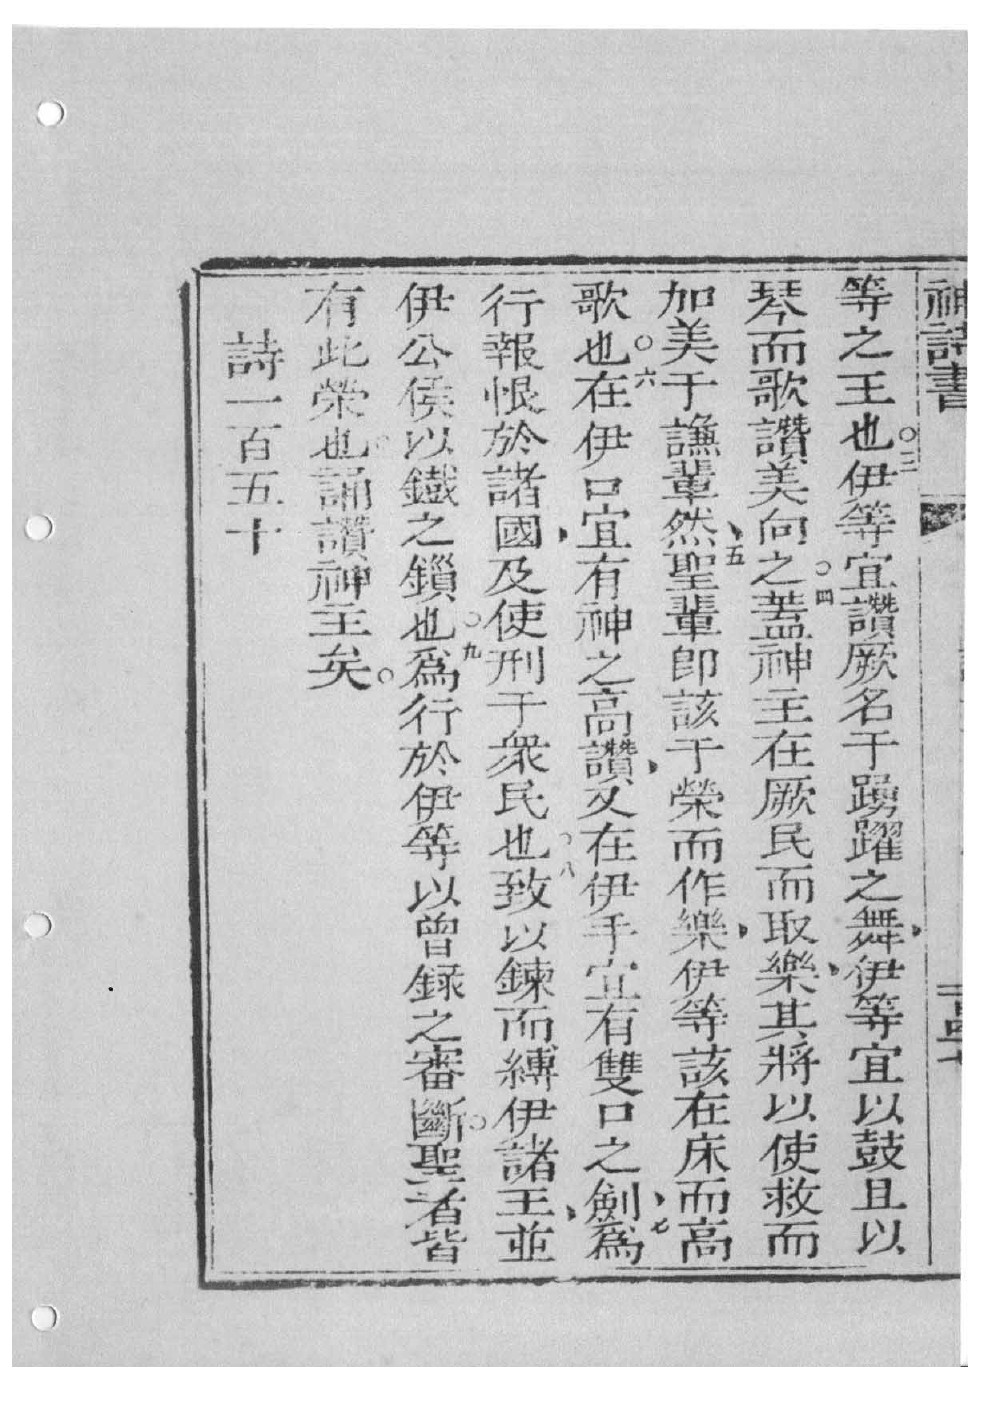 神詩書
等之王也○三伊等宜讚厥名于踴躍之舞、伊等宜以鼓且以
琴而歌讚美向之○四蓋神主在厥民而取樂、其將以使救而
加美于譕輩然、五聖輩卽該于榮而作樂、伊等該在床而高
歌也○六在伊口宜有神之高讚、又在伊手宜有雙口之劍、七爲
行報恨於諸國、及使刑于衆民也○八致以鍊而縛伊諸王、並
伊公侯以鐵之鎖也○九爲行於伊等以曾録之審斷○聖者皆
有此榮也○誦讚神主矣○
詩一百五十